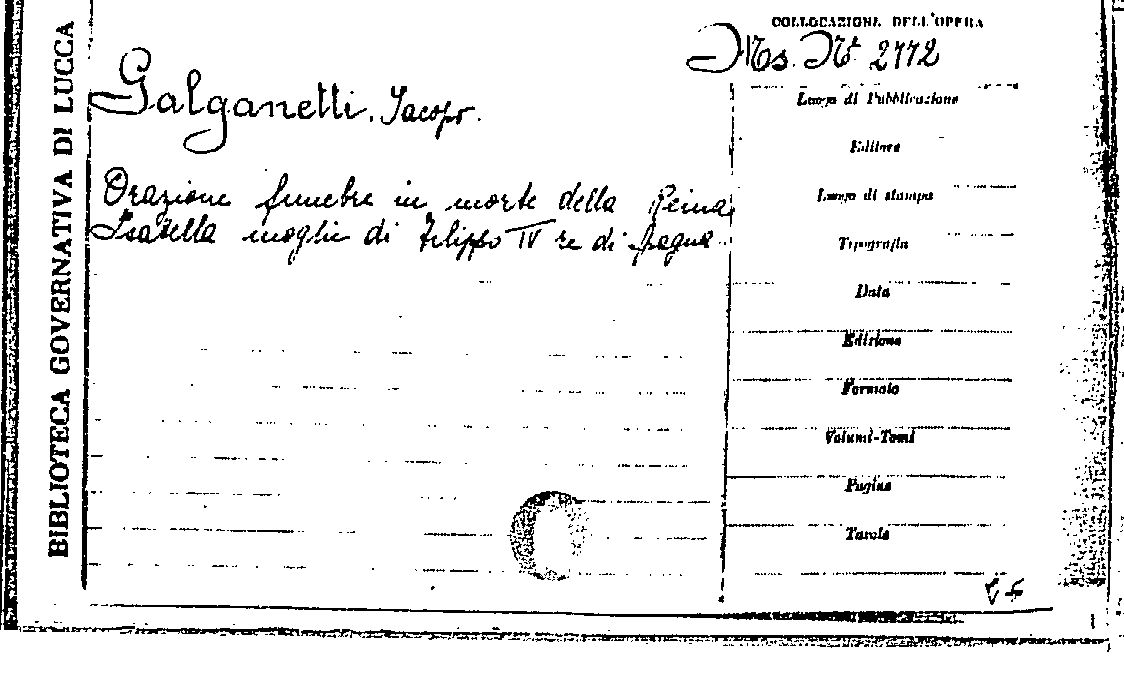 BIBLIOTECA GOVERNATIVA DI LUCCA
COLLOCAZIONE DELL'OPERA
Ms. N° 2172
Galganetti, Jacopo.
Orazione funebre in morte della Reina
Isabella moglie di Filippo IV re di Spagna
Luogo di Pubblicazione
Editore
Luogo di stampa
Tipografia
Data
Edizione
Formato
Volumi-Tomi
Pagine
Tavole